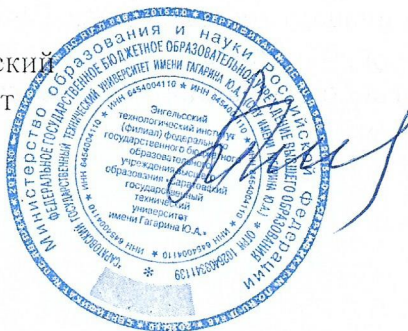 ский
т
Министерство образования и науки Российской Федерации
ФЕДЕРАЛЬНОЕ ГОСУДАРСТВЕННОЕ БЮДЖЕТНОЕ ОБРАЗОВАТЕЛЬНОЕ УЧРЕЖДЕНИЕ ВЫСШЕГО ОБРАЗОВАНИЯ
"САРАТОВСКИЙ ГОСУДАРСТВЕННЫЙ ТЕХНИЧЕСКИЙ УНИВЕРСИТЕТ ИМЕНИ ГАГАРИНА Ю.А."
ИМЕНИ ГАГАРИНА Ю.А.) * ОГРН 1026403341139
* ИНН 6454004110 * ИНН 6454004110 * ИНН 6454004110 * ИНН 6454004110
Энгельсский
технологический институт
(филиал) федерального
государственного бюджетного
образовательного
учреждения высшего
образования «Саратовский
государственный
технический
университет
имени Гагарина Ю.А.»